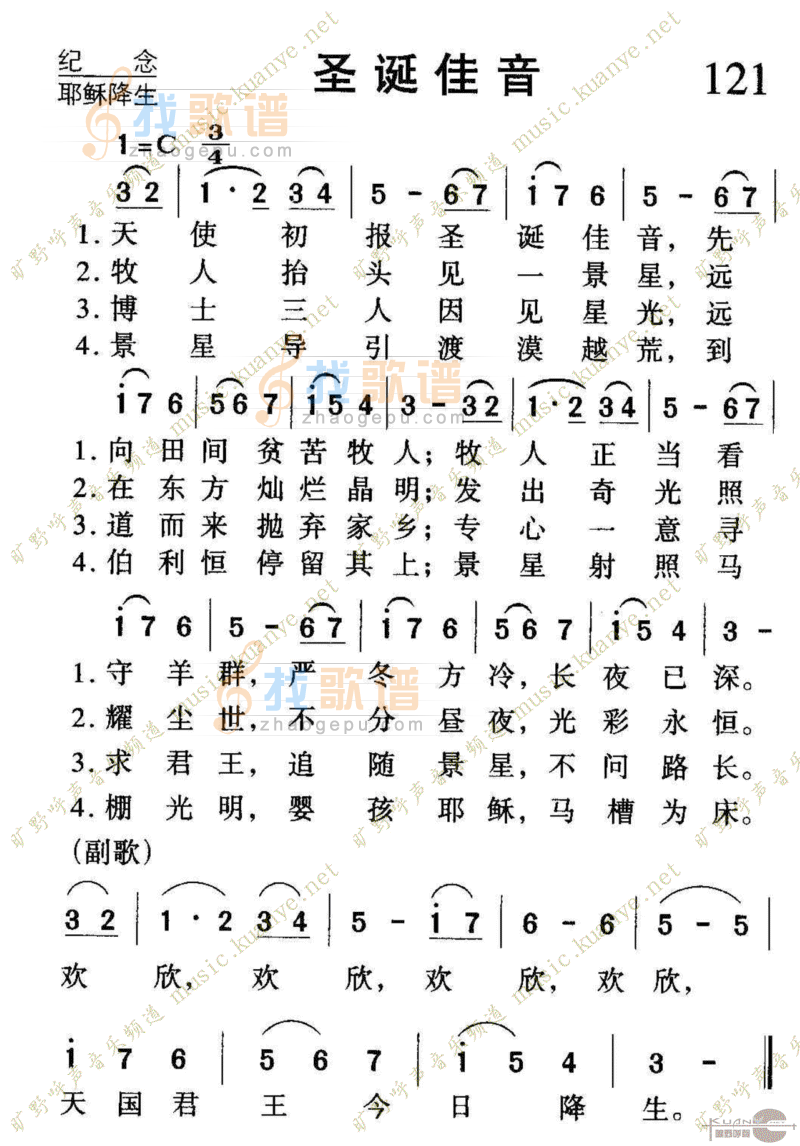 纪 念
耶稣降生
圣诞佳音
121
1=C 3/4
3 2 | 1 · 2 3 4 | 5 - 6 7 | i 7 6 | 5 - 6 7 |
1. 天 使 初 报 圣 诞 佳 音, 先
2. 牧 人 抬 头 见 一 景 星, 远
3. 博 士 三 人 因 见 星 光, 远
4. 景 星 导 引 渡 漠 越 荒, 到
i 7 6 | 5 6 7 | i 5 4 | 3 - 3 2 | 1 · 2 3 4 | 5 - 6 7 |
1. 向 田 间 贫 苦 牧 人; 牧 人 正 当 看
2. 在 东 方 灿 烂 晶 明; 发 出 奇 光 照
3. 道 而 来 抛 弃 家 乡; 专 心 一 意 寻
4. 伯 利 恒 停 留 其 上; 景 星 射 照 马
i 7 6 | 5 - 6 7 | i 7 6 | 5 6 7 | i 5 4 | 3 -
1. 守 羊 群, 严 冬 方 冷, 长 夜 已 深。
2. 耀 尘 世, 不 分 昼 夜, 光 彩 永 恒。
3. 求 君 王, 追 随 景 星, 不 问 路 长。
4. 棚 光 明, 婴 孩 耶 稣, 马 槽 为 床。
(副歌)
3 2 | 1 · 2 3 4 | 5 - i 7 | 6 - 6 | 5 - 5 |
欢 欣, 欢 欣, 欢 欣, 欢 欣,
i 7 6 | 5 6 7 | i 5 4 | 3 - ‖
天 国 君 王 今 日 降 生。
找歌谱
zhaogepu.com
旷野呼声音乐频道 music.kuanye.net